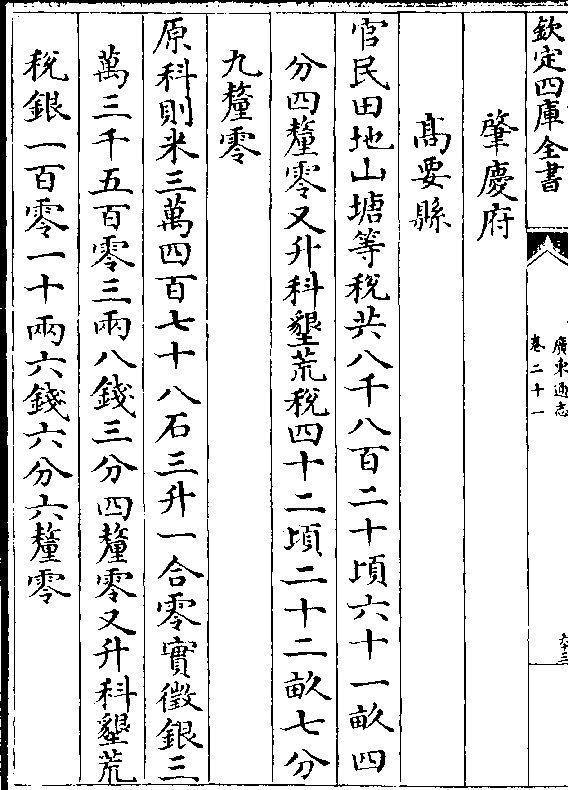 欽定四庫全書
廣東通志
卷二十一
六十三
肇慶府
髙要縣
官民田地山塘等稅共八千八百二十頃六十一畝四
分四釐零又升科墾荒稅四十二頃二十二畝七分
九釐零
原科則米三萬四百七十八石三升一合零實徵銀三
萬三千五百零三兩八錢三分四釐零又升科墾荒
稅銀一百零一十兩六錢六分六釐零